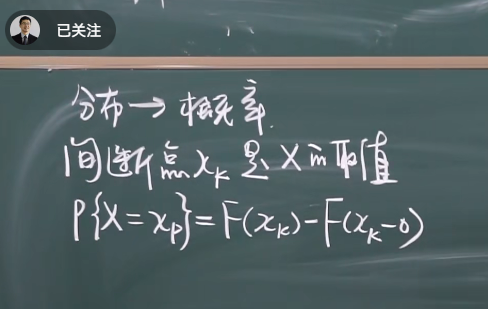 已关注
分布→概率
间断点xₖ是X的取值
P{X=xₚ}=F(xₖ)-F(xₖ-0)